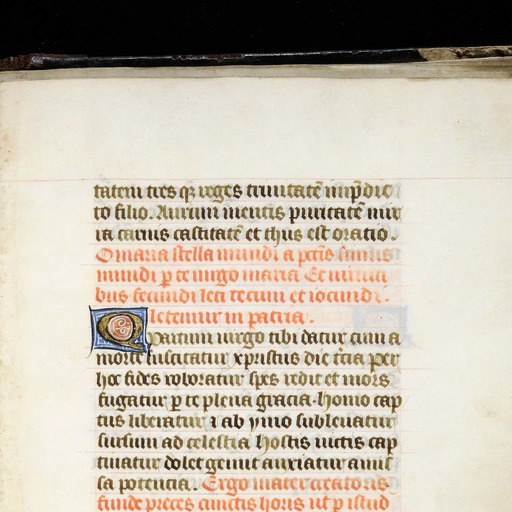 tatem tres q̄ reges trinitatē imp̄dic
to filio. Aurum mentis puritatē mir
ra carnis castitatē et thus est oratio.
O maria stella mundi a p̄ctis sumus
mundi p te virgo maria Et virtuti
bus fecundi leti tecum et iocundi.
letemur in patria.
Quartum virgo tibi datur cum a
morte suscitatur xpristus die t̄cia per
hoc fides roboratur spes redit et mors
fugatur p te plena gracia. homo cap
tus liberatur ⁊ ab ymo subleuatur
sursum ad celestia hostis victis cap
tiuatur dolet gemit anxiatur amis
sa potencia. Ergo mater creatoris
funde preces cunctis horis ut p istud